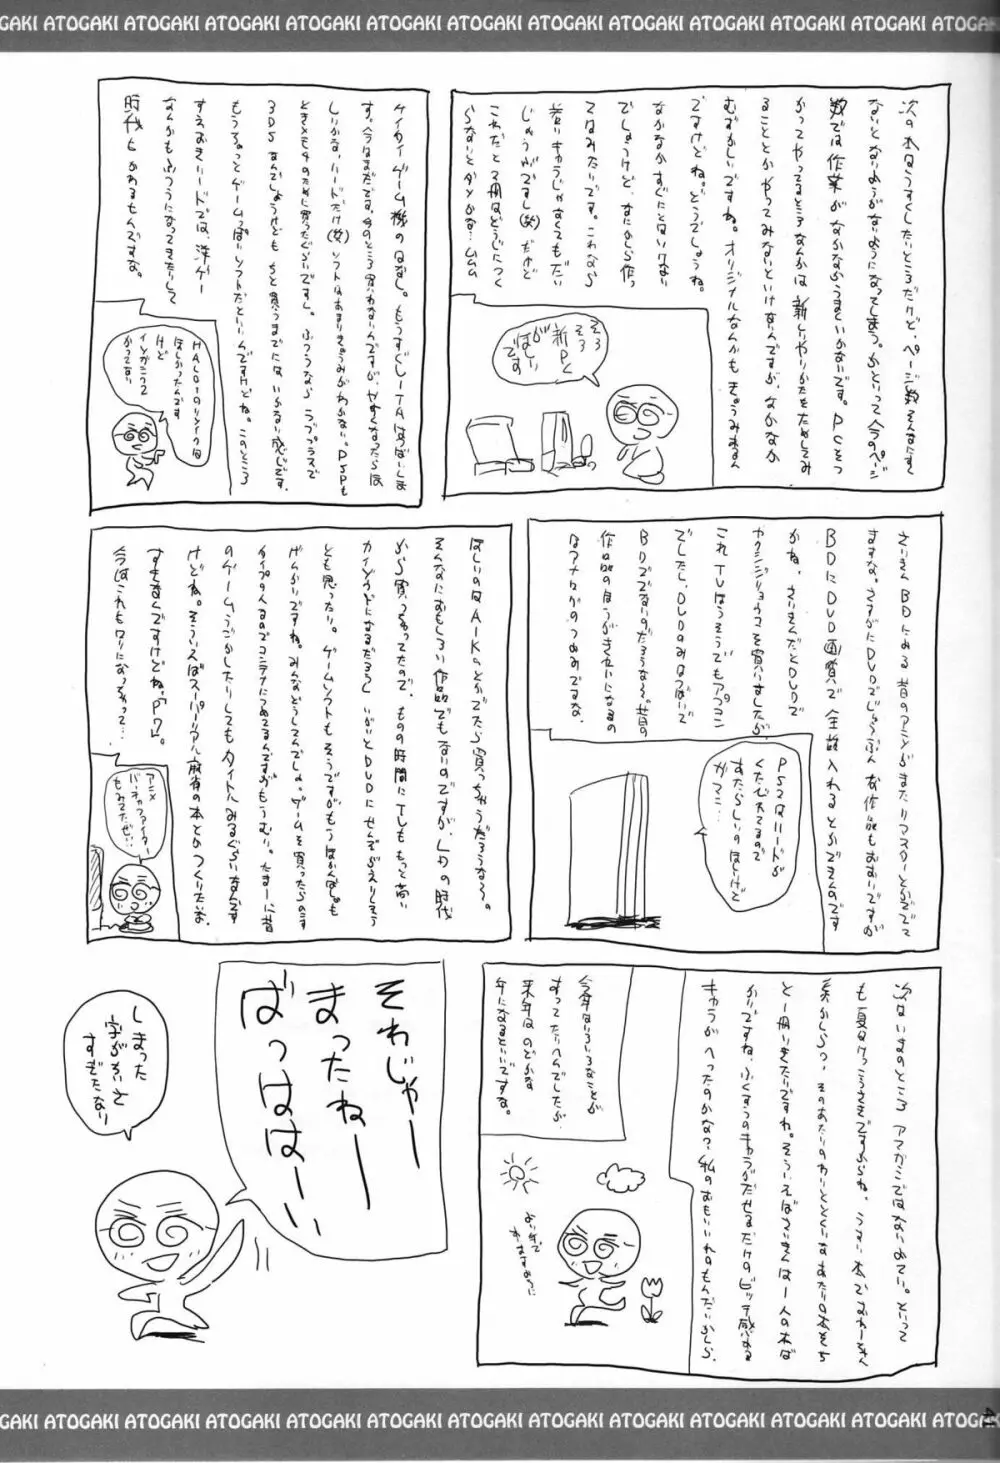 ATOGAKI ATOGAKI ATOGAKI ATOGAKI ATOGAKI ATOGAKI ATOGAKI ATOGAKI ATOGAKI
次の本はこうすくしたいところだけど、ページ数そんなにすく
ないとないようがないようになってしまう。かといって今のページ
数では作業がなかなかうまくいかないです。PCをつ
かってやってるところなんかは新しいやりかたをためしてみ
ることとかやってみないといけないんですが、なかなか
むずかしいですね。オリジナルなんかもきょうみあるん
ですけどね。どうでしょうね。
なかなかすぐにとはいけない
でしょうけど、なにかしら作っ
てはみたいです。これなら
若いキャラじゃなくてもだい
じょうぶですし(笑)だけど
これだと2冊はどうじにつく
らないとダメかな…ムムム
そろ
そろ
新PC
がほしい
です
ケイタイゲーム機のはなし。もうすぐLITAはつばいしま
す。今はまだです。今のところ買わないんですが、やすくなったらほ
しいかな、ハードだけ(笑)ソフトはあまりきょうみがわかない。PSPも
ときメモ4のために買ったぐらいですし。ふつうならラブプラスで
3DSなんでしょうけどもちと買うまでにはいかない感じです。
もうちょっとゲームっぽいソフトだといいんですけどね。このところ
すえおきハードでは、洋ゲー
なんかもふつうになってきたりして
時代もかあるもんですな。
HALO1のリメイクは
ほしかったんです
けど
インがこって
かってない
さいきんBDにある昔のアニメがまたリマスターとかででて
ますな。さすがにDVDでじゅうぶんな作品もおおいですが
BDにDVD画質で全話入れるとかできんのです
かね。さいきんだとDVDで
ヤクシジリョウコを買いましたが、
これTVほうそうでもアプコン
でしたし、DVDのみはつばいで
BDででないのだろうな〜。昔の
作品のほうがきれいになるの
はアナログのつよみですな。
PS2はハードが
くたびれてるので
あたらしいのほしけど
ガマン…
ほしいのはA・I・Kのとかでたら買っちゃうだろうな〜。
そんなにおもしろい作品でもないのですが、LDの時代
から買っちゃってたので。ものの時間にTLももっと高い
カイゾウドになるだろうしいがいとDVDにせんぞがえりしそう
とも思ったり。ゲームソフトもそうですがもうほかんばしょも
げんかいですね。みんなどうしてんでしょ。ゲームを買ったらのこす
タイプの人なのでコンテナにつめてるんですがもうむり。たまーに昔
のゲームうごかしたりしてもタイトルみるぐらいなんです
けどね。そういえばスーパーリアル麻雀の本とかつくりたいな。
すきなんですけどね、P7。
今はこれもロリになっちゃって…
アニメ
バーチャファイター
もみてたぜい…
次はいまのところアマガミではないよてい。といって
も夏はけっこうさきですからね。うすい本でおわーるく
キャラがへったのかな?私のおもいいれのもんだいかしら。
今年はいろいろなことが
あってたいへんでしたが、
来年はのどかな
年になるといいですな。
よい年で
ありますように
それじゃー
まったねー
ばっははーい
しまった
字がちいさ
すぎたなり
ATOGAKI ATOGAKI ATOGAKI ATOGAKI ATOGAKI ATOGAKI ATOGAKI ATOGAKI ATOGAKI
41